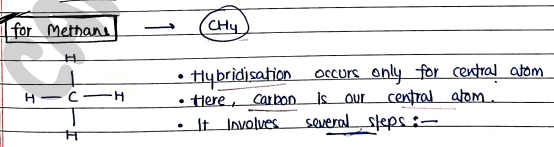 for Methane → CH4
H
• Hybridisation occurs only for central atom
H — C — H • Here, carbon is our central atom.
• It involves several steps :—
H